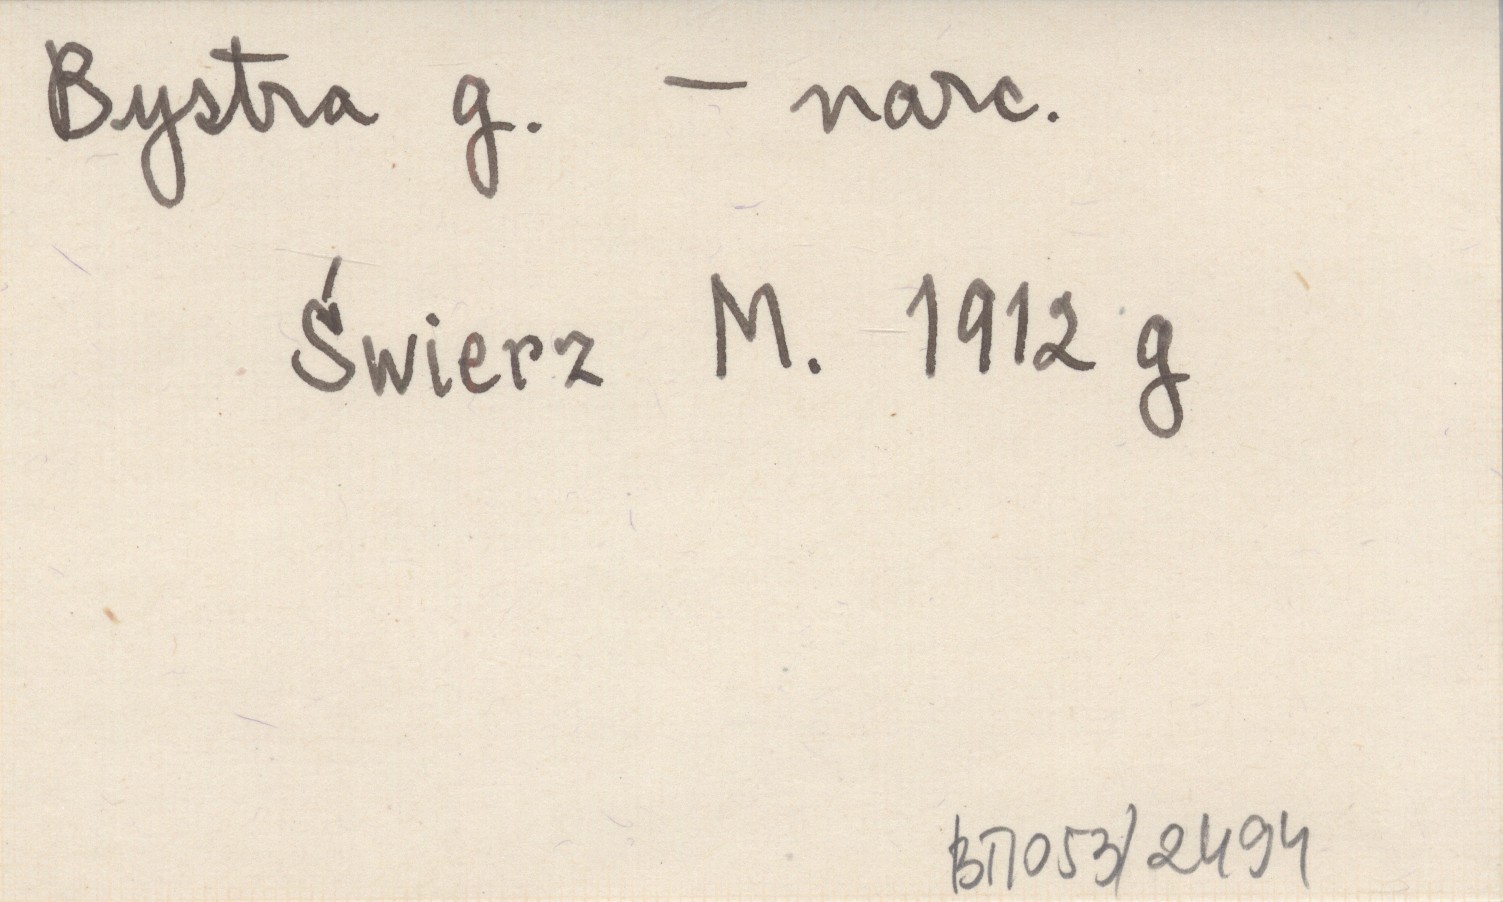 Bystra g. – narc.
Świerz M. 1912 g
BTT053/2494